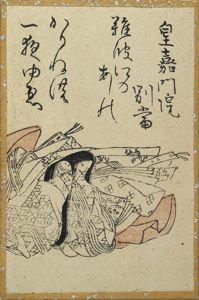 皇嘉門院
別當
難波江の
あしの
かりねの
一夜ゆゑ